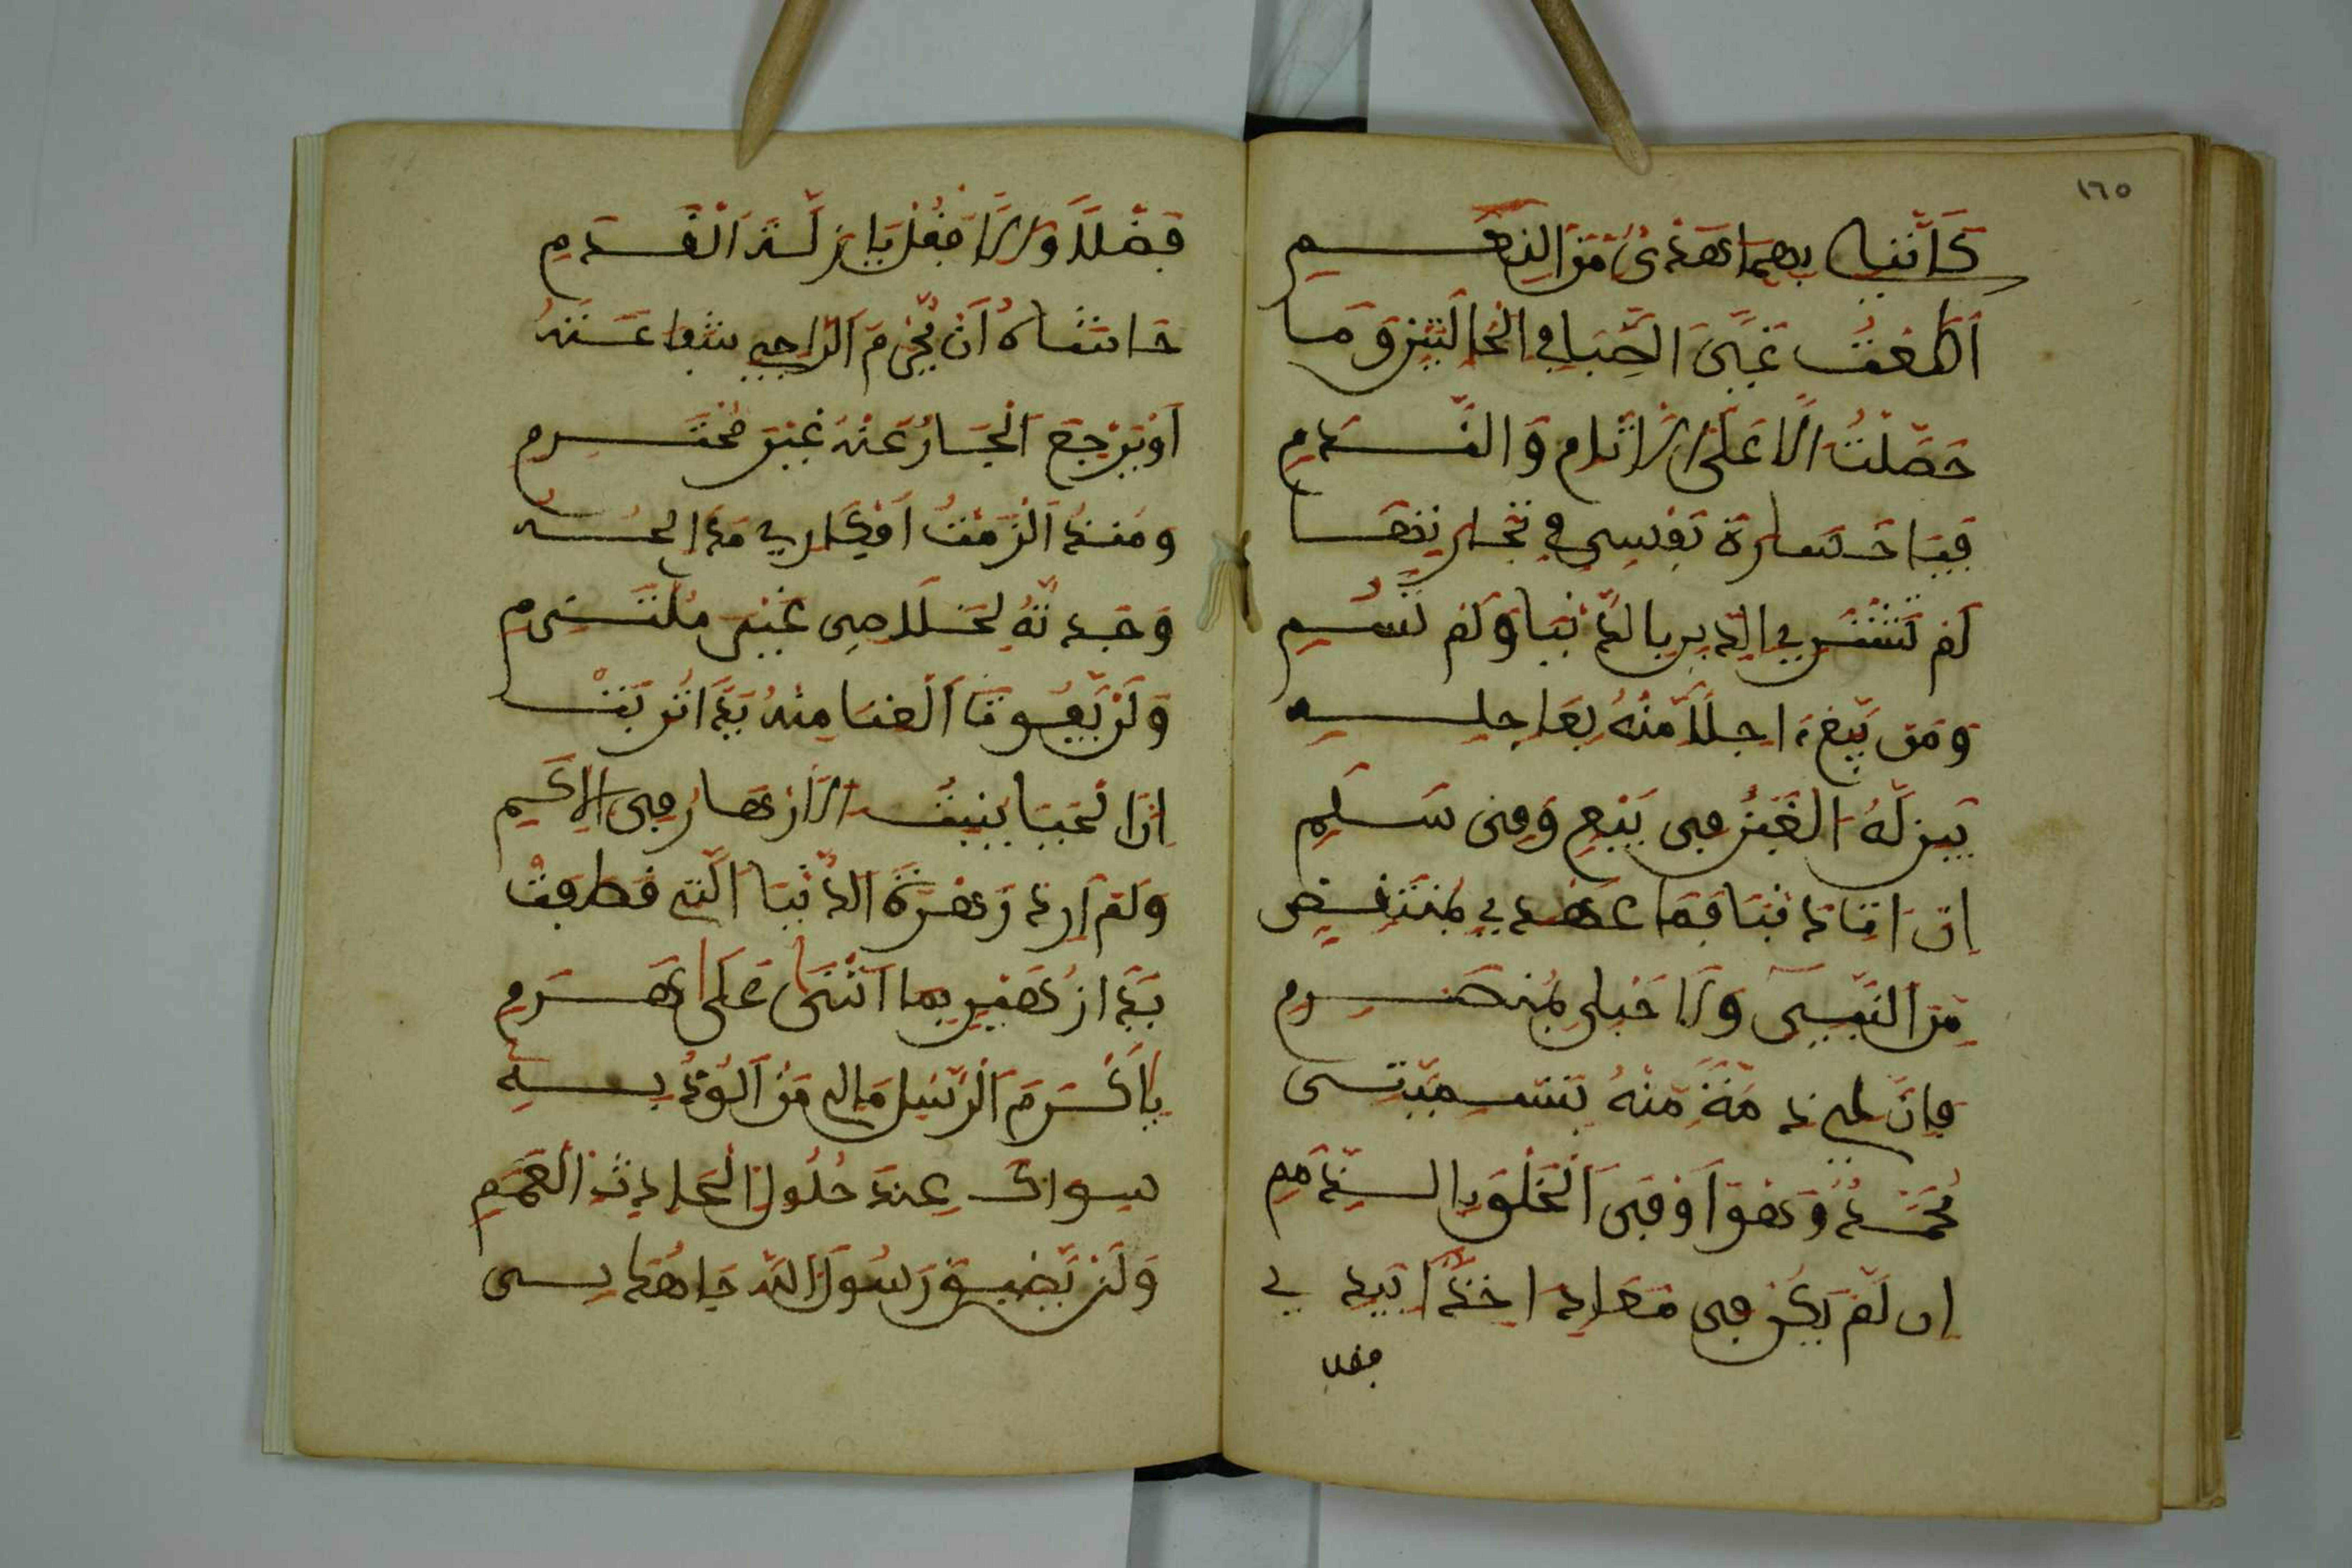 ١٦٥
كَأَنَّنِي بِهِمَا هَدْيٌ مِنَ النِّعَمِ
أَطَعْتُ غَيَّ الصِّبَا فِي الْحَالَتَيْنِ وَمَا
حَصَلْتُ إِلَّا عَلَى الْآثَامِ وَالنَّدَمِ
فَيَا خَسَارَةَ نَفْسِي فِي تِجَارَتِهَا
لَمْ تَشْتَرِ الدِّينَ بِالدُّنْيَا وَلَمْ تَسُمِ
وَمَنْ يَبِعْ آجِلًا مِنْهُ بِعَاجِلِهِ
يَبِنْ لَهُ الْغَبْنُ فِي بَيْعٍ وَفِي سَلَمِ
إِنْ آتِ ذَنْبًا فَمَا عَهْدِي بِمُنْتَقِضٍ
مِنَ النَّبِيِّ وَلَا حَبْلِي بِمُنْصَرِمِ
فَإِنَّ لِي ذِمَّةً مِنْهُ بِتَسْمِيَتِي
مُحَمَّدًا وَهُوَ أَوْفَى الْخَلْقِ بِالذِّمَمِ
إِنْ لَمْ يَكُنْ فِي مَعَادِي آخِذًا بِيَدِي
فقل
فَضْلًا وَإِلَّا فَقُلْ يَا زَلَّةَ الْقَدَمِ
حَاشَاهُ أَنْ يُحْرَمَ الرَّاجِي شَفَاعَتَهُ
أَوْ يَرْجِعَ الْجَارُ عَنْهُ غَيْرَ مُحْتَرَمِ
وَمُنْذُ أَلْزَمْتُ أَفْكَارِي مَدَائِحَهُ
وَجَدْتُهُ لِخَلَاصِي خَيْرَ مُلْتَزِمِ
وَلَنْ يَفُوتَ الْغِنَى مِنْهُ يَدًا تَرِبَتْ
إِنَّ الْحَيَا يُنْبِتُ الْأَزْهَارَ فِي الْأَكَمِ
وَلَمْ أُرِدْ زَهْرَةَ الدُّنْيَا الَّتِي قَطَفَتْ
يَدَا زُهَيْرٍ بِمَا أَثْنَى عَلَى هَرِمِ
يَا أَكْرَمَ الرُّسْلِ مَا لِي مَنْ أَلُوذُ بِهِ
سِوَاكَ عِنْدَ حُلُولِ الْحَادِثِ الْعَمِمِ
وَلَنْ يَضِيقَ رَسُولَ اللَّهِ جَاهُكَ بِي